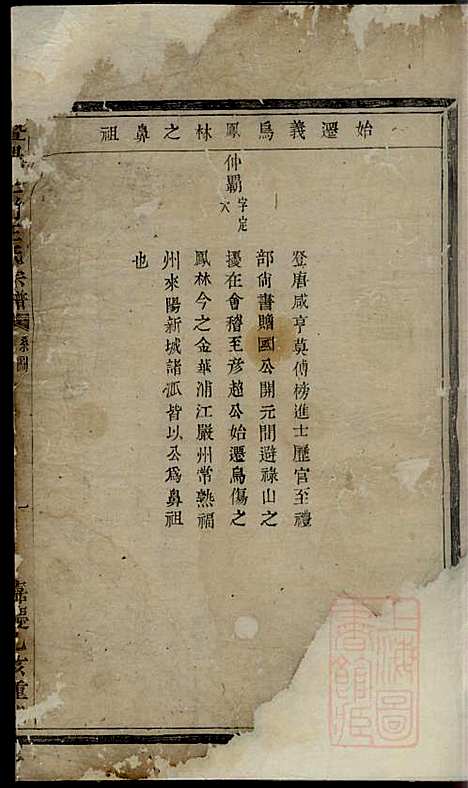 始遷義烏鳳林之鼻祖
仲霸 字定
大
登唐咸亨莫傅榜進士歷官至禮
部尚書贈國公開元間避祿山之
擾在會稽至彥超公始遷烏傷之
鳳林今之金華浦江嚴州常熟福
州來陽新城諸派皆以公爲鼻祖
也
宗譜
系圖
一
亥重
上海圖書館藏